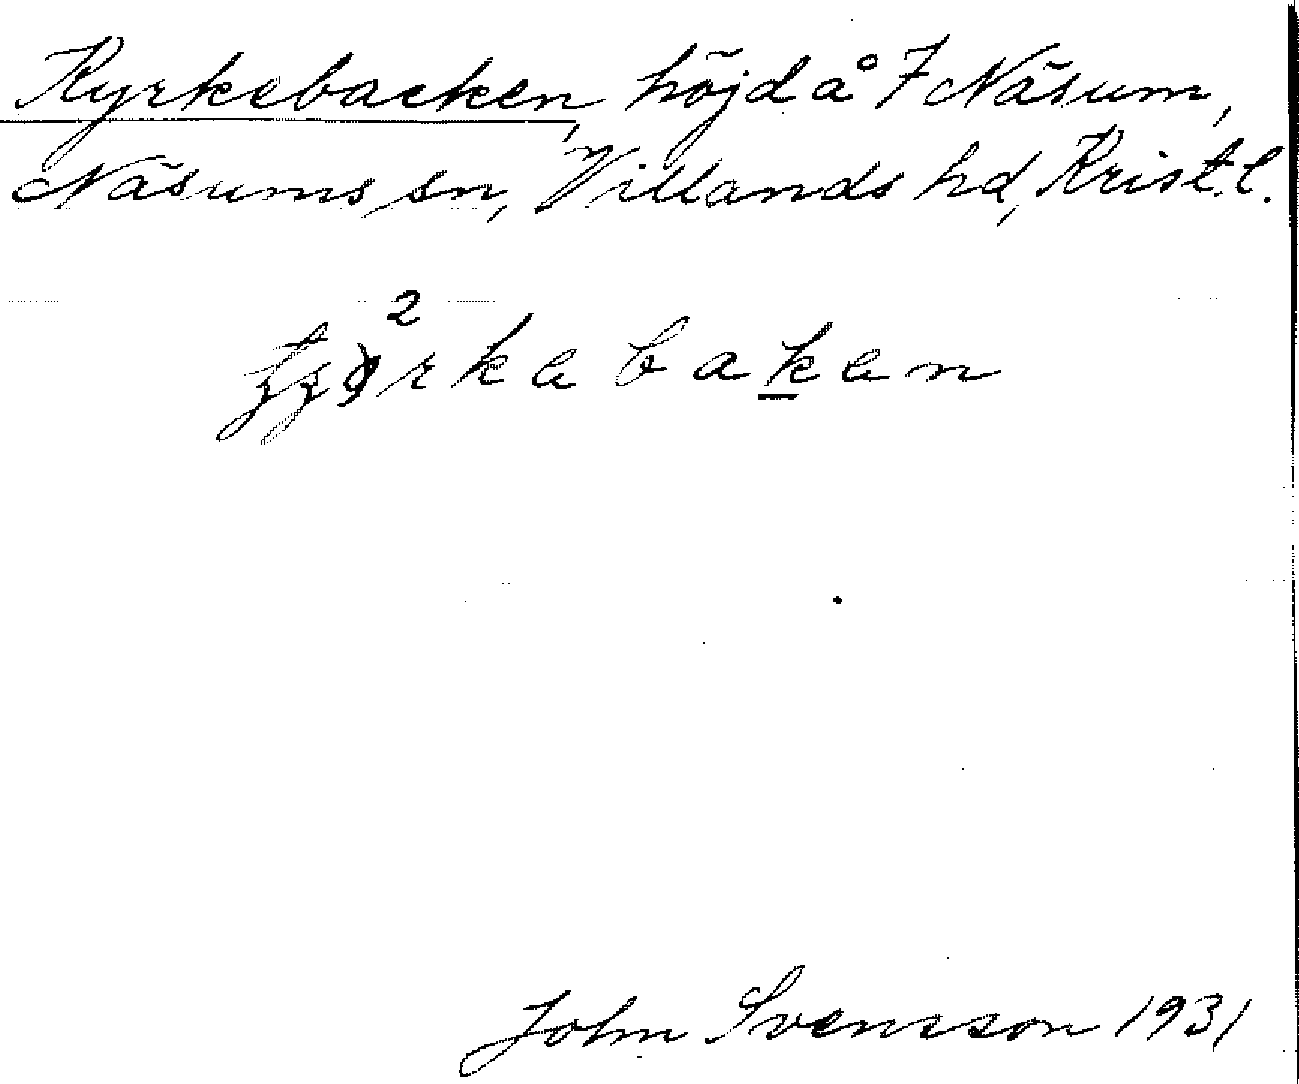 Kyrkebacken, höjd å 7 Näsum,
Näsums sn, Villands hd, Krist. l.
2
John Svensson 1931